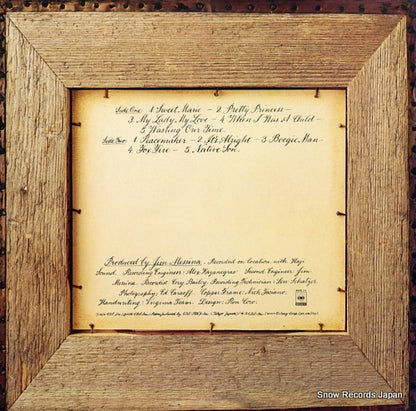 Side One: 1 Sweet Marie – 2 Pretty Princess –
3 My Lady, My Love – 4 When I Was A Child –
5 Wasting Our Time.
Side Two: 1 Peacemaker – 2 It's Alright – 3 Boogie Man –
4 Fox Fire – 5 Native Son.
Produced by Jim Messina. Recorded on Location with Haji
Sound. Recording Engineer: Alex Kazanegras Second Engineer: Jim
Messina. Recordist: Cory Bailey Recording Technician: Len Schatzer
Photography: Ed Caraeff. Copper Frame: Nick Fasciano.
Handwriting: Virginia Team. Design: Ron Coro.
Snow Records Japan